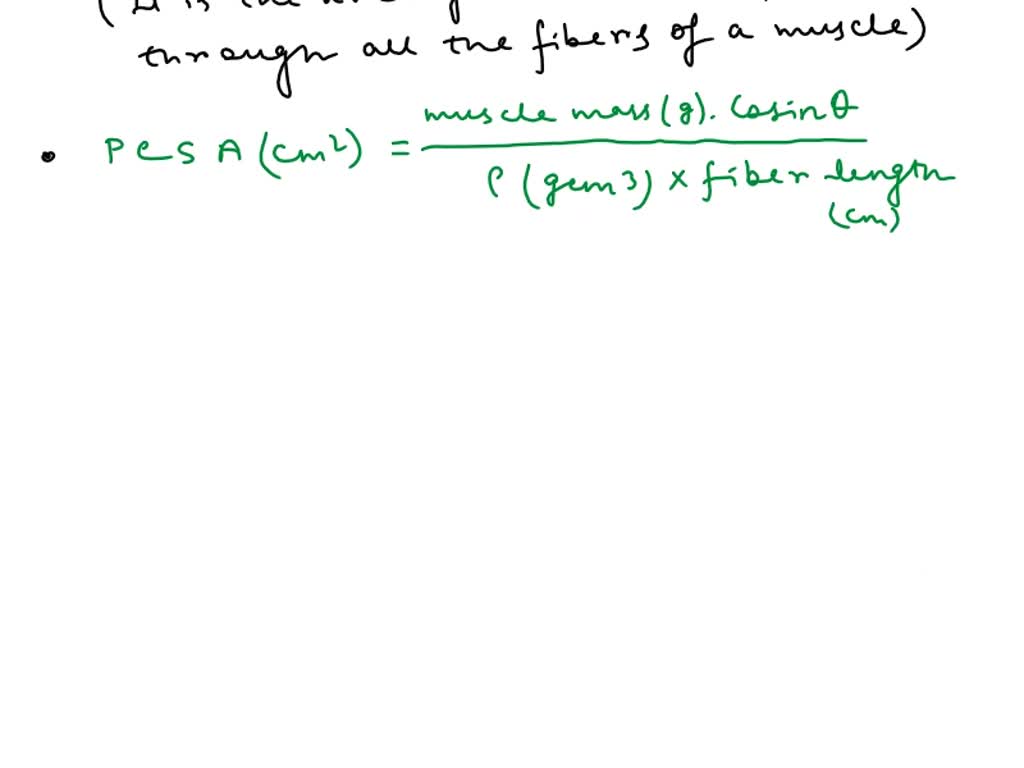 ( It is the
through all the fibers of a muscle)
• PCSA (cm²) = muscle mass (g). Cosin θ
ρ (gcm3) × fiber length
(cm)